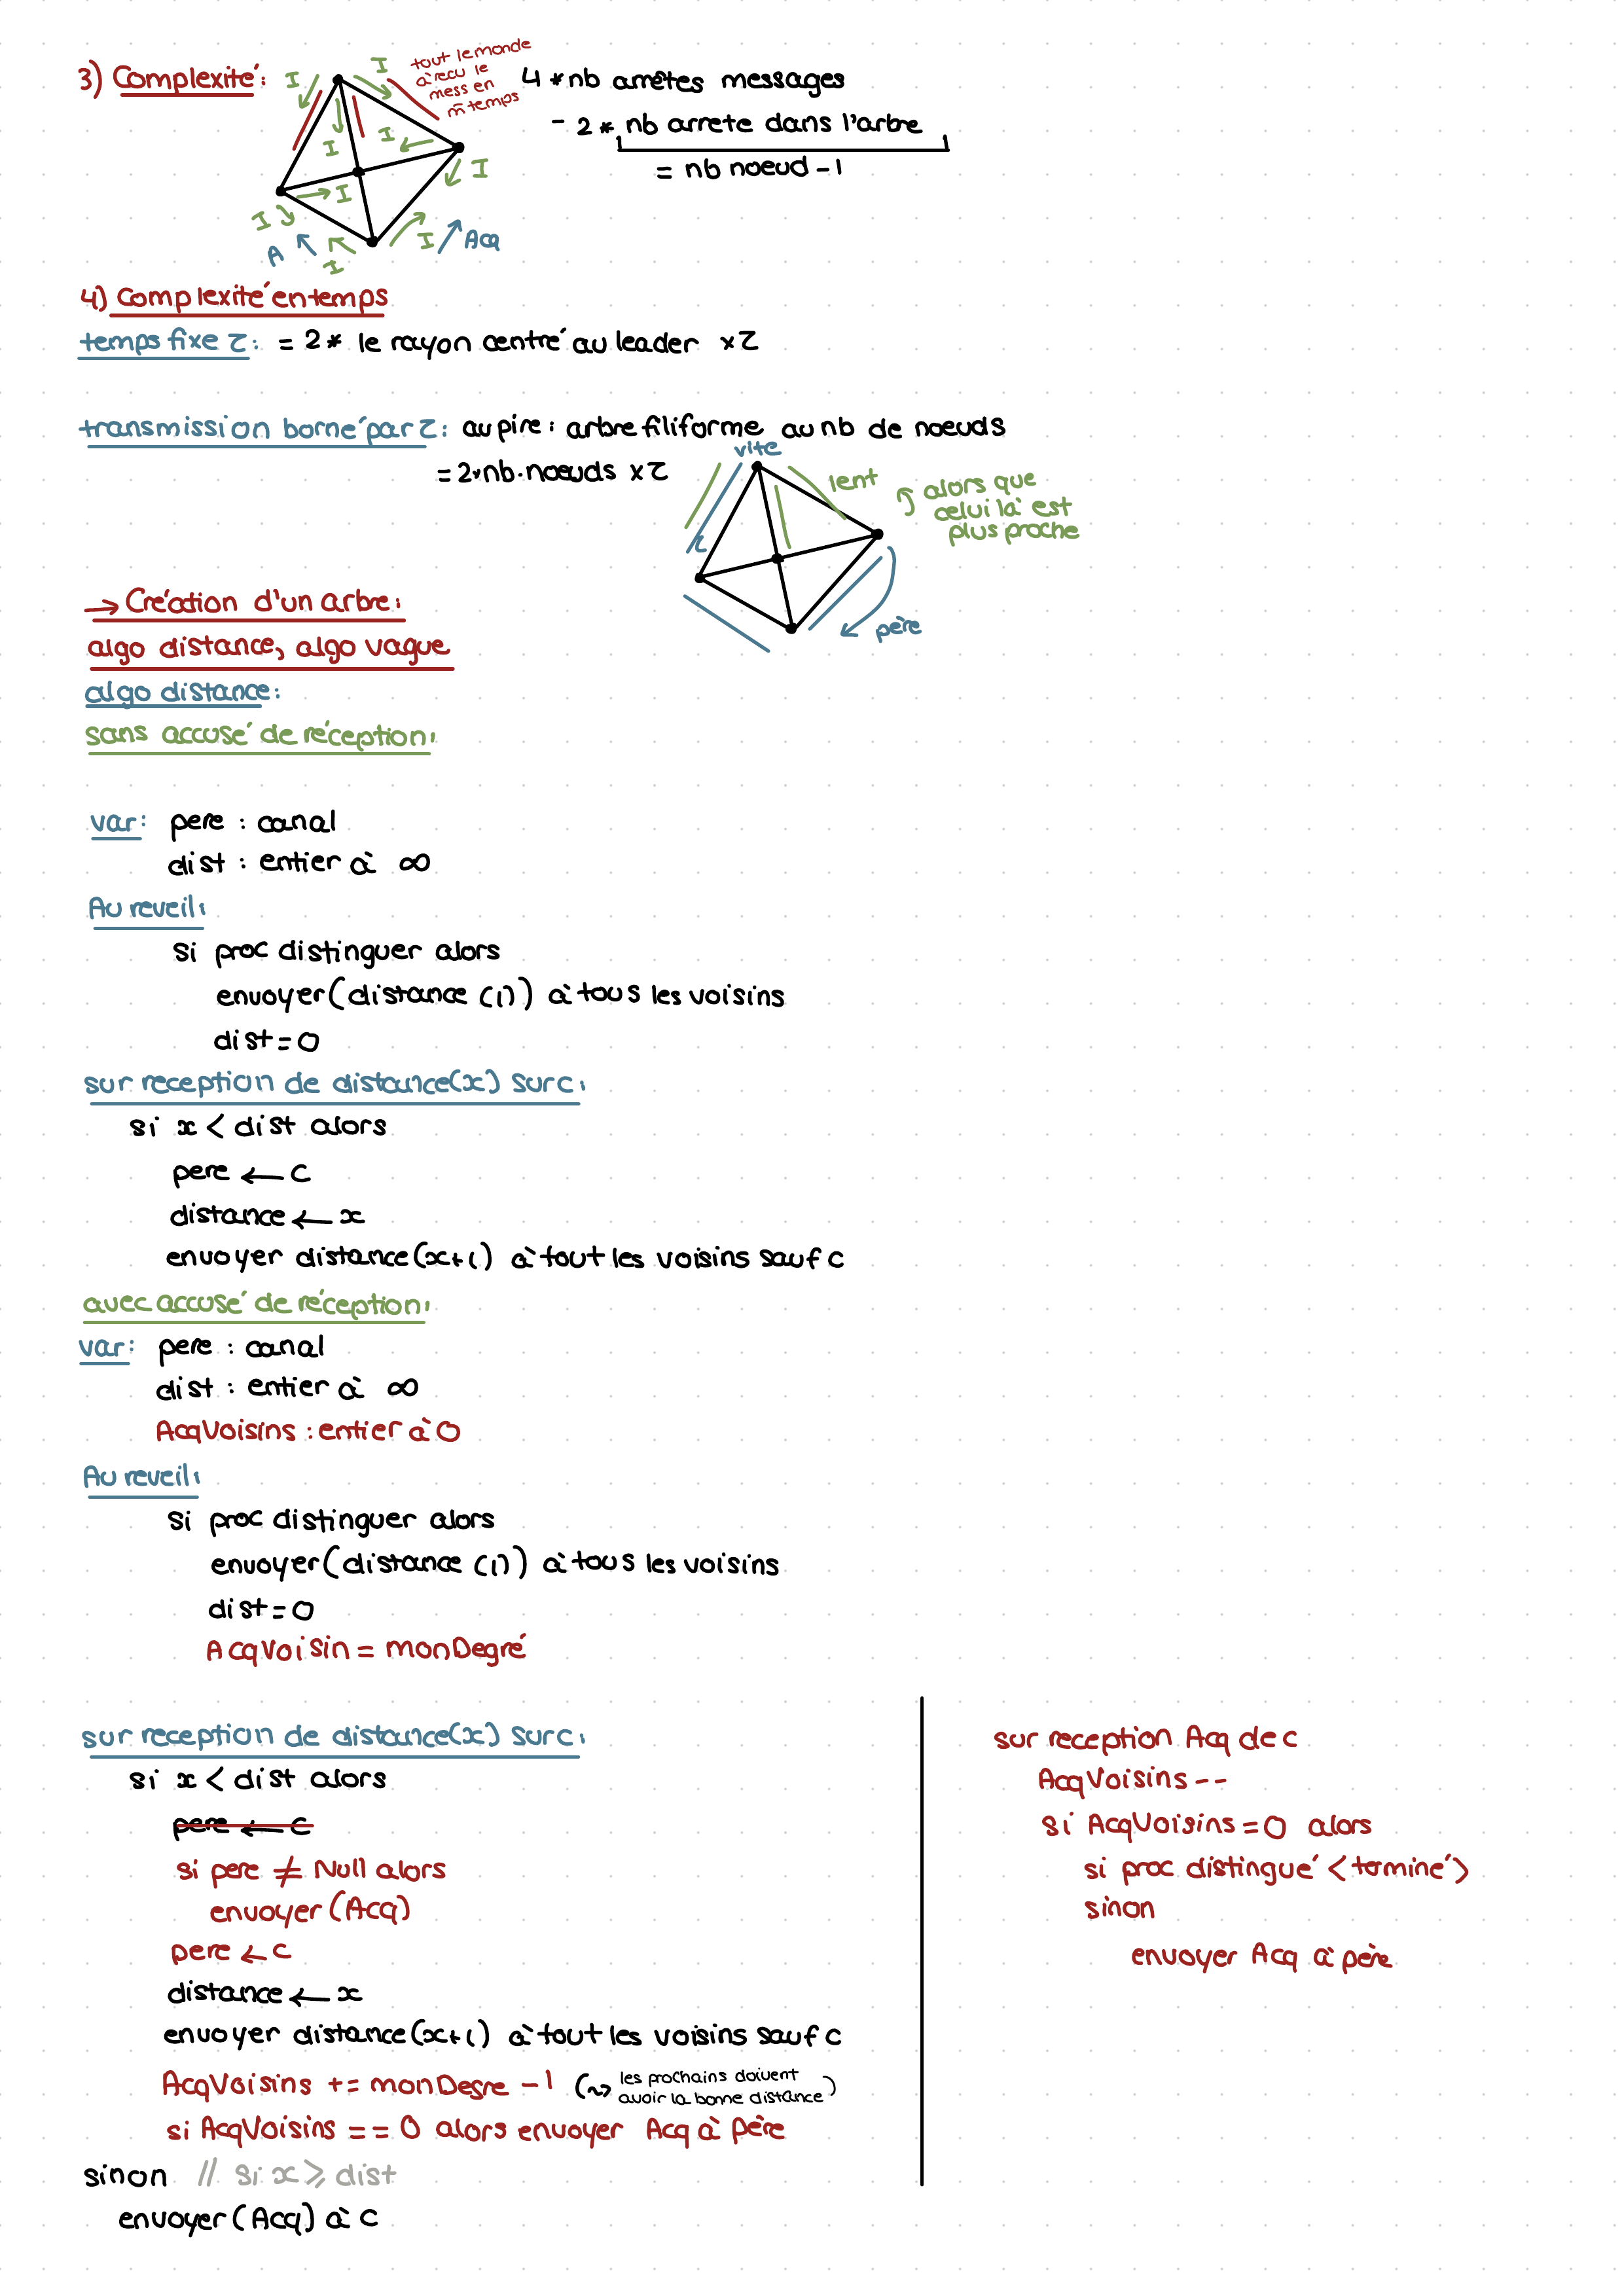 3) Complexité:
I
I
tout le monde
à recu le
mess en
m̄ temps
4 * nb arrêtes messages
- 2 * nb arrete dans l'arbre
= nb noeud - 1
I
I
I
I
I
I
I
A
Acq
4) Complexité en temps
temps fixe τ: = 2 * le rayon centré au leader × τ
transmission borné par τ: au pire: arbre filiforme au nb de noeuds
= 2 * nb. noeuds × τ
vite
lent
alors que
celui là est
plus proche
père
→ Création d'un arbre:
algo distance, algo vague
algo distance:
sans accusé de réception:
var: pere : canal
dist : entier à ∞
Au reveil:
si proc distinguer alors
envoyer (distance (1)) à tous les voisins
dist = 0
sur reception de distance(x) sur c:
si x < dist alors
pere ← c
distance ← x
envoyer distance(x+1) à tout les voisins sauf c
avec accusé de réception:
var: pere : canal
dist : entier à ∞
AcqVoisins : entier à 0
Au reveil:
si proc distinguer alors
envoyer (distance (1)) à tous les voisins
dist = 0
AcqVoisin = monDegré
sur reception de distance(x) sur c:
si x < dist alors
pere ← c
si pere ≠ Null alors
envoyer (Acq)
pere ← c
distance ← x
envoyer distance(x+1) à tout les voisins sauf c
AcqVoisins += monDegre - 1 (↝ les prochains doivent
avoir la bonne distance)
si AcqVoisins == 0 alors envoyer Acq à père
sinon // si x ≥ dist
envoyer (Acq) à c
sur reception Acq de c
AcqVoisins --
si AcqVoisins = 0 alors
si proc distingué <terminé>
sinon
envoyer Acq à père